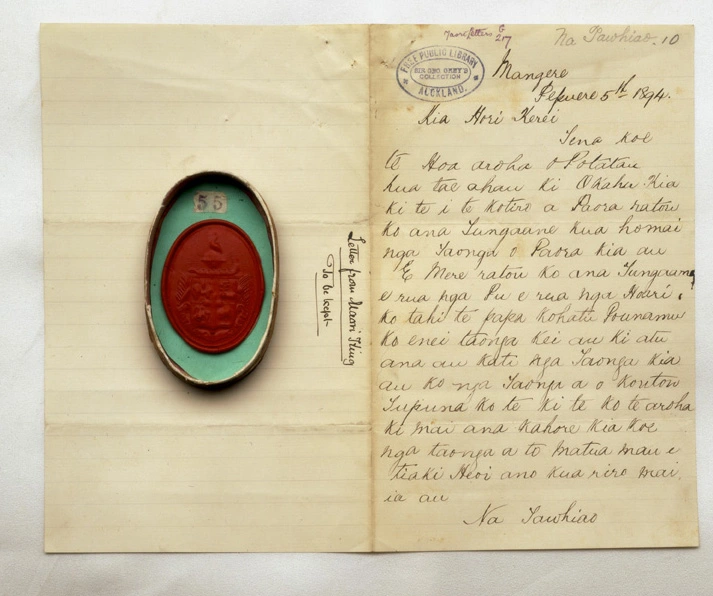 55
Letter from Maori King
To be kept
Maori letters G
217
Na Tawhiao. 10
FREE PUBLIC LIBRARY
SIR GEO. GREY'S
COLLECTION
AUCKLAND.
Mangere
Pepuere 5th 1894.
Kia Hori Kerei
Tena koe
te Hoa aroha o Potatau
kua tae ahau ki Okahu Kia
ki te i te kotiro a Paora ratou
ko ana Tungaane kua homai
nga Taonga o Paora kia au
E Mere ratou ko ana Tungaane
e rua nga Pu e rua nga Hoari.
ko tahi te papa kohatu Pounamu
ko enei taonga kei au ki atu
ana au kati nga Taonga kia
au ko nga Taonga a o koutou
Tupuna ko te ki te ko te aroha
ki mai ana kahore kia koe
nga taonga a to matua mau e
tiaki Heoi ano kua riro mai
ia au
Na Tawhiao